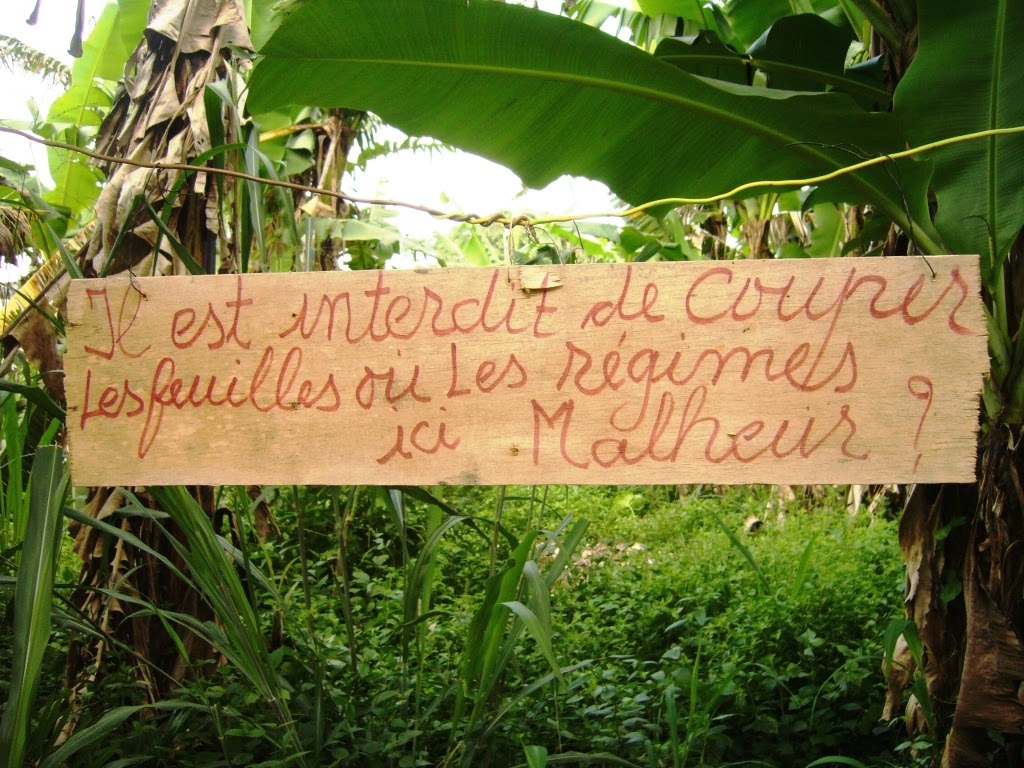 Il est interdit de couper
Les feuilles ou Les régimes
ici Malheur ?